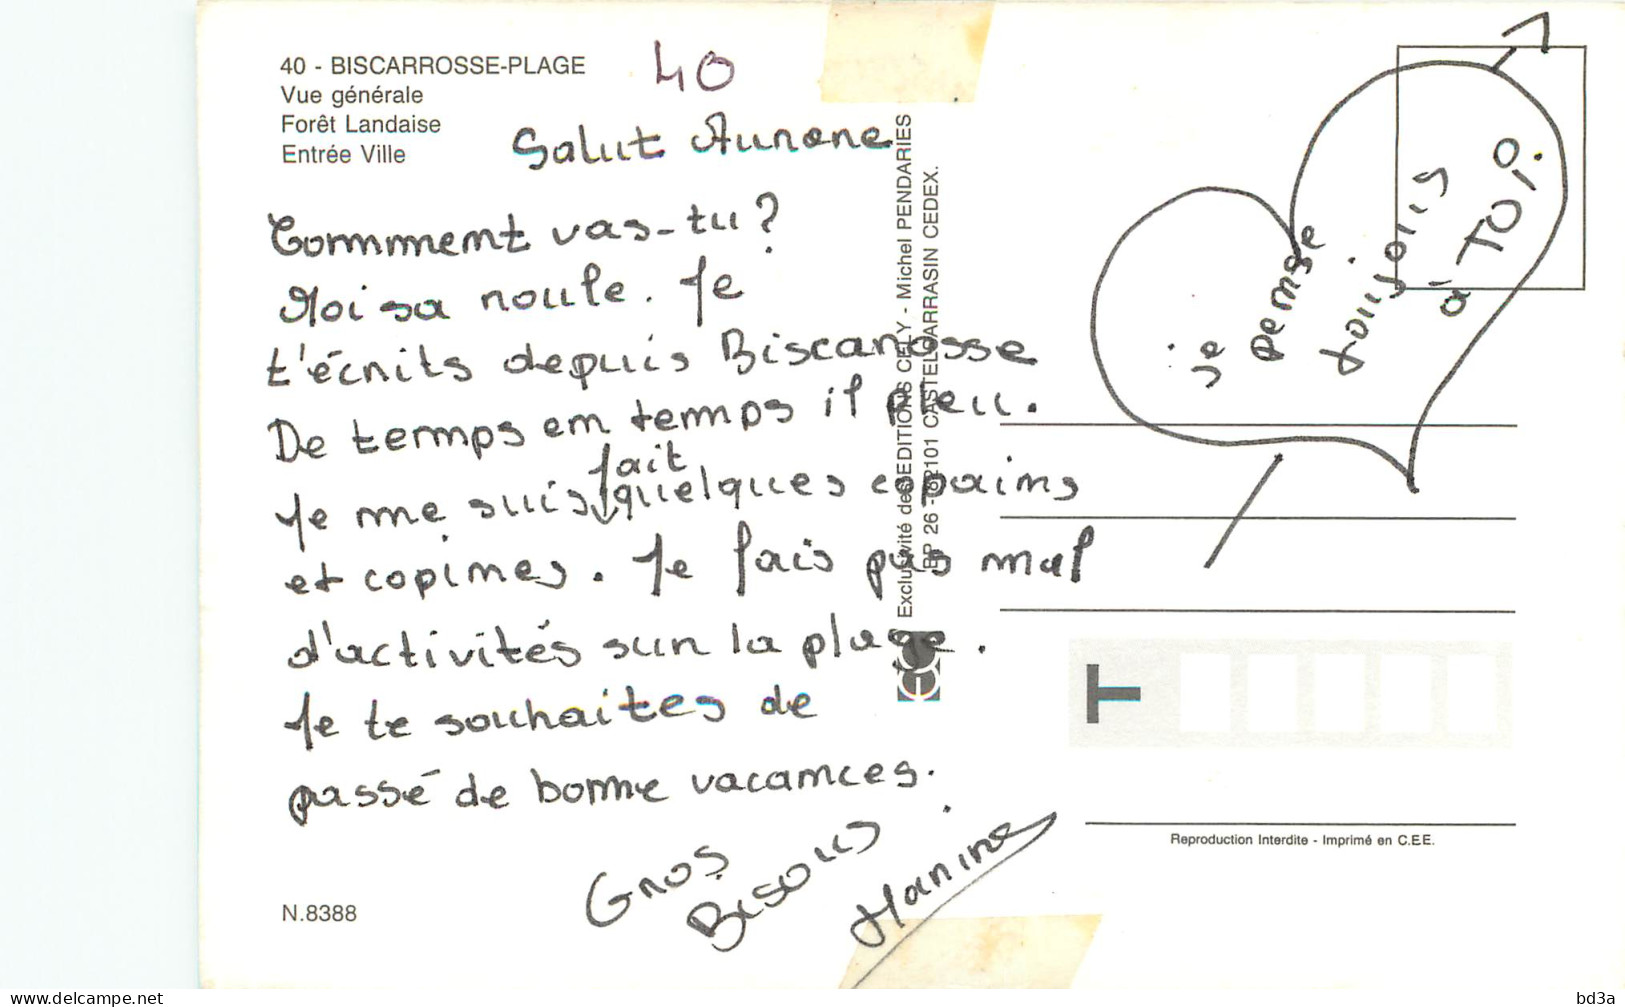 40 - BISCARROSSE-PLAGE
Vue générale
Forêt Landaise
Entrée Ville
40
Salut Aurore
Commment vas-tu ?
Moi sa roule. Je
t'écrits depuis Biscarosse
De temps en temps il pleu.
Je me suis fait quelques copains
et copines. Je fais pas mal
d'activités sur la plage.
Je te souhaites de
passé de bonne vacances.
Gros
Bisous
Marine
N.8388
Exclusivité des EDITIONS CELY - Michel PENDARIES
BP 26 - 82101 CASTELSARRASIN CEDEX.
je
pense
toujours
à TOI
T
Reproduction Interdite - Imprimé en C.E.E.
delcampe.net
bd3a